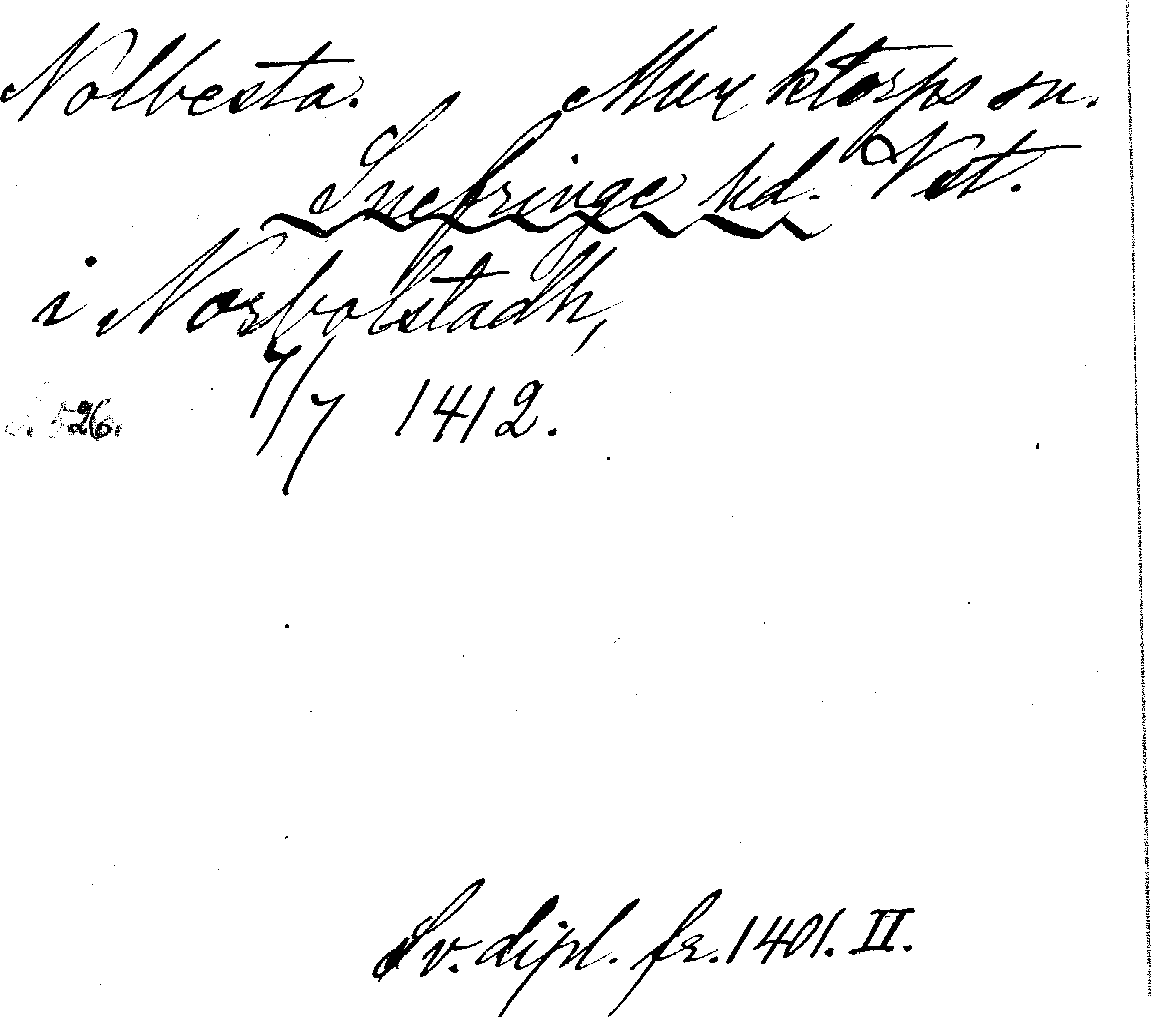 Nolbesta. Munktorps sn.
Snefringe hd. Vst.
i Norbolstadh,
7/7 1412.
s. 526.
Sv. dipl. fr. 1401. II.